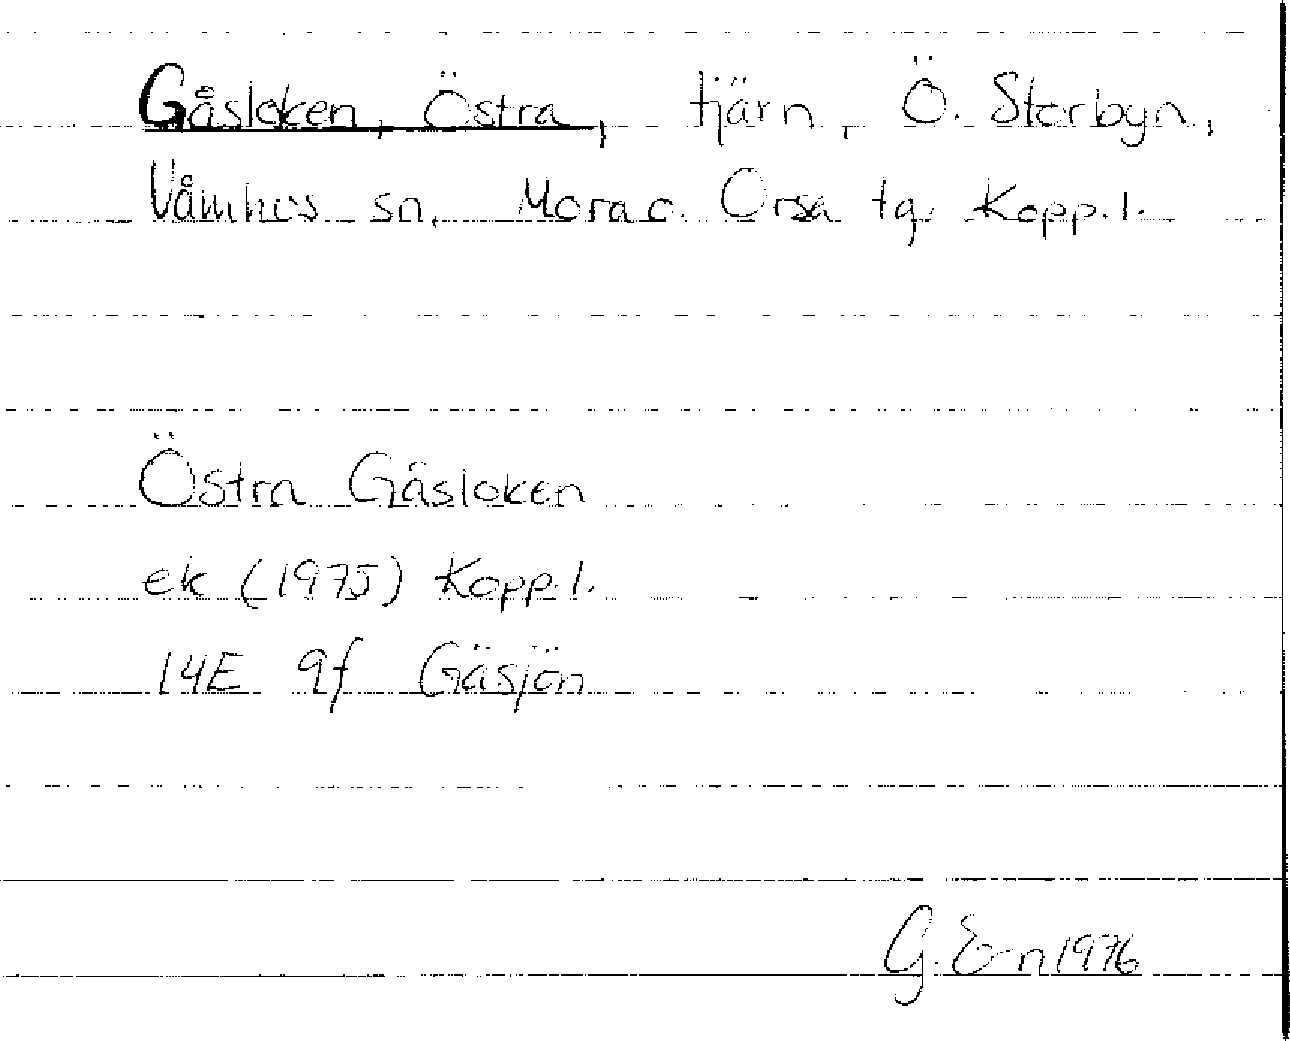 Gåsloken, Östra, tjärn, Ö. Storbyn,
Våmhus sn, Mora o. Orsa tg. Kopp. l.
Östra Gåsloken
ek (1975) Kopp. l.
14E 9f Gåsjön
G. 1976